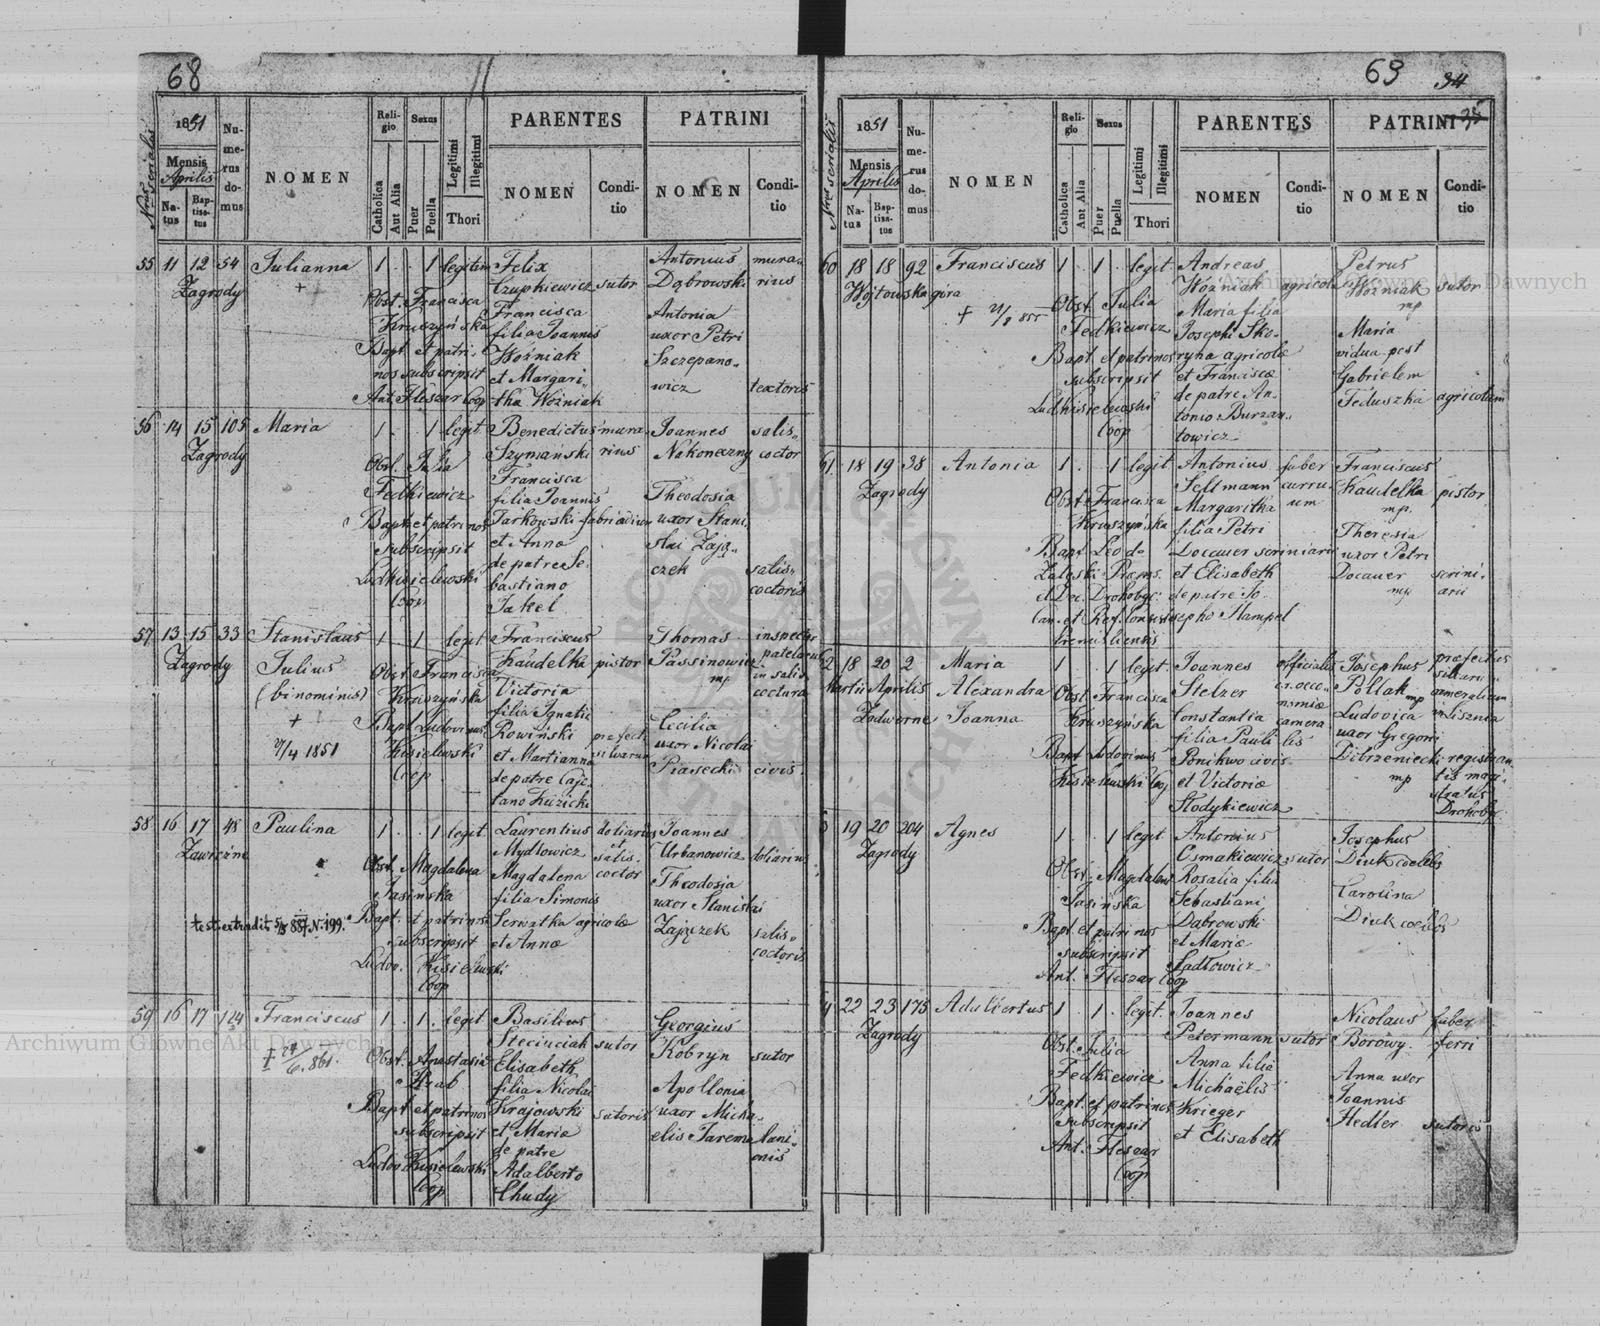 68
11
1851
Nrus serialis
Mensis
Aprilis
Natus
Baptisatus
Numerus domus
NOMEN
Religio
Catholica
Aut Alia
Sexus
Puer
Puella
Legitimi
Illegitimi
Thori
PARENTES
NOMEN
Conditio
PATRINI
NOMEN
Conditio
55 11 12 54 Julianna 1 1 legitim Felix Antonius mura-
Zagrody + Czupkiewicz sutor Dąbrowski rius
Obst. Francisca Francisca Antonia
Kruszyńska filia Joannis uxor Petri
Bapt. et patri- Woźniak Szczepano-
nos subscripsit et Margari- wicz textoris
Ant. Fleszar Coop tha Woźniak
56 14 15 105 Maria 1 1 legit. Benedictus mura- Joannes salis-
Zagrody Szymanski rius Nakoneczny coctor
Obst. Julia Francisca
Fedkiewicz filia Joannis Theodosia
Bapt. et patrinos Tarkowski uxor Stani-
subscripsit et Anna slai Zają-
de patre Se- czek salis-
Lud Kisielewski bastiano coctoris
Coop Jakel
57 13 15 33 Stanislaus 1 1 legit Franciscus Thomas inspector
Zagrody Julius Kaudelka pistor Passinowicz
(binominis) Obst Francisca Victoria mp in salis
Kruszyńska filia Ignatii coctura
+ Bapt Ludovicus Rowiński Cecilia
27/4 1851 Kisielewski et Martianna uxor Nicolai
Coop de patre Caje- Piasecki civis
tano Łuzicki
58 16 17 48 Paulina 1 1 legit Laurentius doliarius Joannes
Zawieżne Mydłowicz et Urbanowicz doliarius
Obst. Magdalena Magdalena salis- Theodosia
Jasinska filia Simonis coctor uxor Stanislai
test. extradit. N. 199. Bapt. et patrinos Serwatka agricolæ Zajączek salis-
subscripsit et Annæ coctoris
Ludov. Kisielewski
Coop
59 16 17 124 Franciscus 1 1 legit Basilius Georgius
Steciuciak sutor Kobryn sutor
861. Obst. Anastasia Elisabeth
filia Nicolai Apollonia
Bapt. et patrinos Krajowski sutoris uxor Micha-
subscripsit et Mariæ elis Jarema lani-
de patre onis
Ludov Kisielewski Adalberto
Coop Chudy
69
34
1851
Nrus serialis
Mensis
Aprilis
Natus
Baptisatus
Numerus domus
NOMEN
Religio
Catholica
Aut Alia
Sexus
Puer
Puella
Legitimi
Illegitimi
Thori
PARENTES
NOMEN
Conditio
PATRINI
NOMEN
Conditio
60 18 18 92 Franciscus 1 1 legit Andreas Petrus
Wojtowska góra Woźniak agricola Woźniak sutor
+ 21/8 855 Obst. Julia Maria filia mp
Fedkiewicz Josephi Sko- Maria
Bapt. et patrinos ryka agricolæ vidua post
subscripsit et Franciscæ Gabrielem
Lud Kisielewski de patre An- Seduszka agricolam
Coop tonio Burzan-
towicz
61 18 19 38 Antonia 1 1 legit Antonius faber Franciscus
Zagrody Seltmann curru- Kaudelka pistor
Obst. Francisca Margaritha um mp.
Kruszyńska filia Petri Theresia
Bapt Leo de Docauer scriniarii uxor Petri
Zaleski et Elisabeth Docauer scrini-
de patre Jo- mp arii
sepho Stampel
62 18 20 2 Maria 1 1 legit Joannes officialis Josephus præfectus
Martii Aprilis Alexandra Stelzer Pollak mp
Zadworne Joanna Obst. Francisca Constantia Ludovica
Kruszyńska filia Pauli uxor Gregorii
Bapt Ludovicus Ponikwo civis Dobrzeniecki registran-
Kisielewski Coop et Victoriæ mp tis magi-
Słodykiewicz stratus
Drohoby.
19 20 204 Agnes 1 1 legit Antonius Josephus
Zagrody Osmakiewicz sutor Diuk coelebs
Obst. Magdalena Rosalia filia
Jasińska Sebastiani Carolina
Bapt. et patrinos Dąbrowski Diuk coelebs
subscripsit et Mariæ
Ant. Fleszar Coop Sadłowicz
22 23 175 Adalbertus 1 1 legit. Joannes Nicolaus faber
Zagrody Petermann sutor Borowy. ferri
Obst. Julia Anna filia
Fedkiewicz Michaëlis Anna uxor
Bapt. et patrinos Krieger Joannis
subscripsit et Elisabeth Hedler sutoris
Ant. Fleszar
Coop
Archiwum Główne Akt Dawnych
Archiwum Główne Akt Dawnych